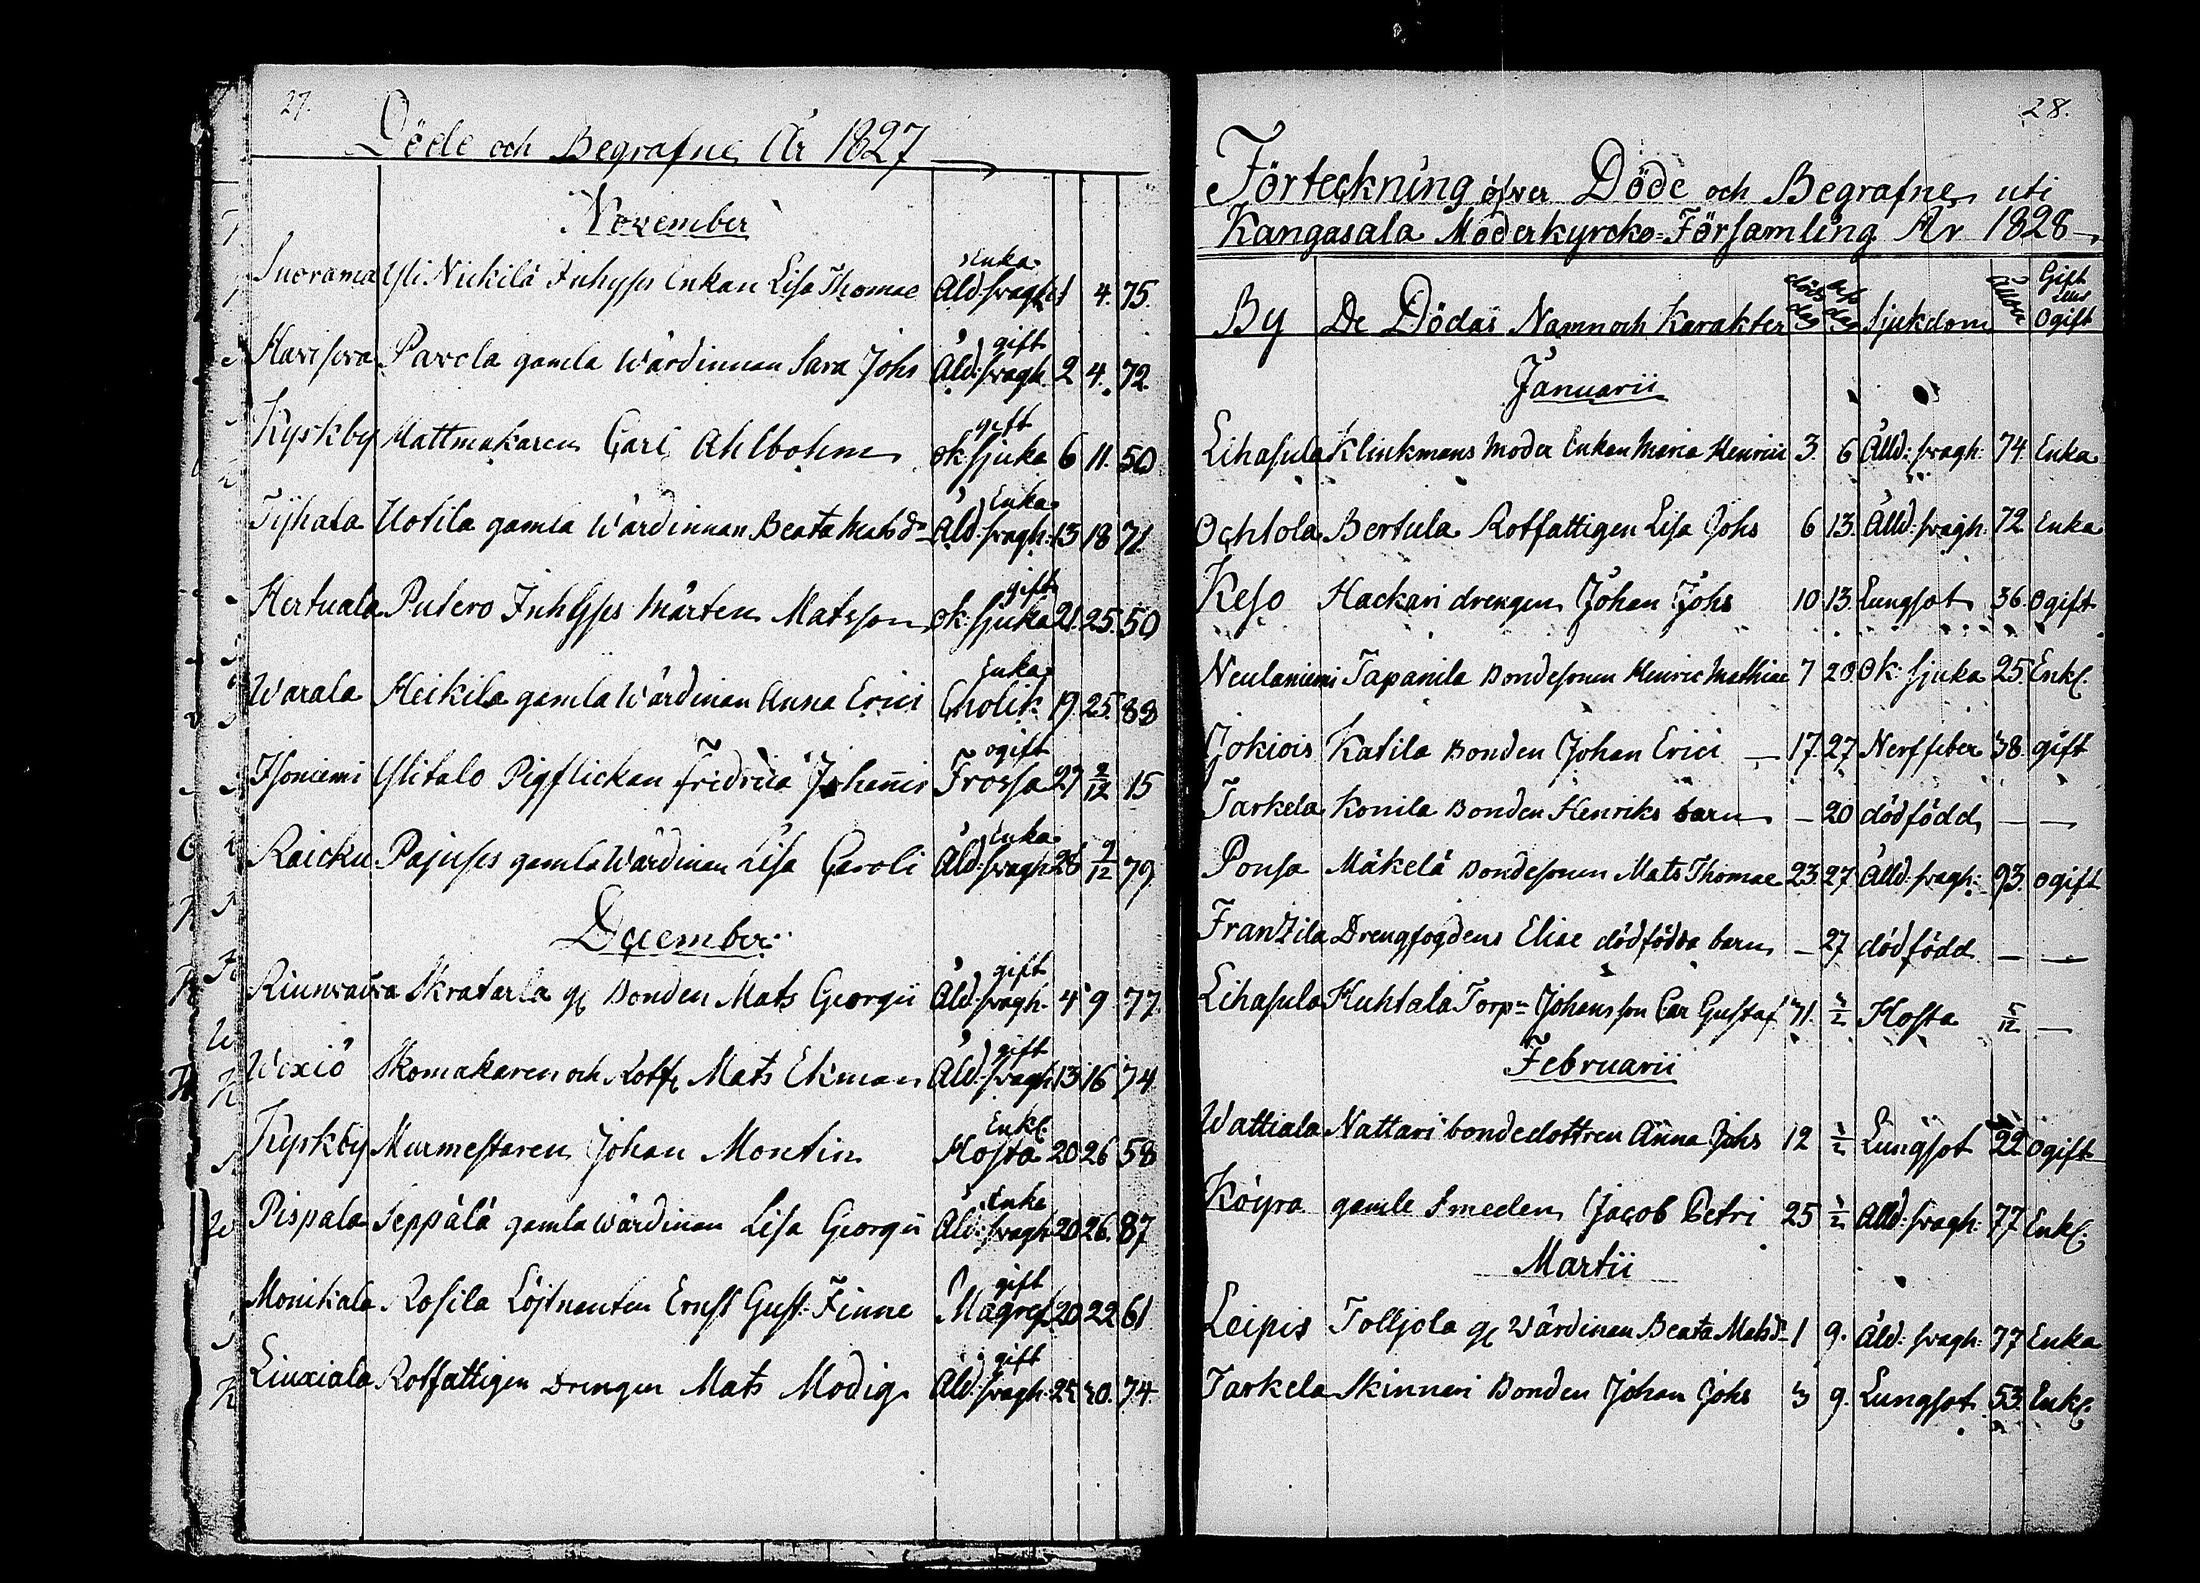 27.
Döde och Begrafne År 1827
November
Suorama Yli Nickilä Inhyses Enkan Lisa Thomae Enka Åld: svagh: 1 4. 75.
Havisova Pavola gamla Wärdinnan Sara Johs gift Åld: svagh. 2 4. 72.
Kyrkby Mattmakaren Carl Ahlbohm gift ok: sjuka 6 11. 50
Tijhala Uotila gamla Wärdinnan Beata Matsdr Enka Åld: svagh: 13 18 71.
Hertuala Putero Inhyses Mårten Matsson gift ok: sjuka 21. 25. 50
Warala Heikila gamla Wärdinan Anna Erici Enka Cholik 19. 25. 88
Isoniemi Ylitalo Pigflickan Fridrica Johannis ogift Frossa 27 2/12 15
Raicku Pajuses gamla Wärdinan Lisa Caroli Enka Åld: svagh 28 2/12 79.
December
Riunvaiva Skratarla gl Bonden Mats Georgii gift Åld: svagh. 4 9. 77.
Wexiö Skomakaren och Rotf: Mats Ekman gift Åld: svagh 13 16 74.
Kyrkby Murmestaren Johan Montin Enkl. Hosta 20 26 58
Pispala Seppälä gamla wärdinan Lisa Georgii Enka Åld: svagh 20 26. 87
Monikala Rosila Löjtnanten Ernst Gust: Finne gift Magref 20 22 61
Liuxiala Rotfattigen Drengen Mats Modig gift Åld: svagh. 25 30. 74.
28.
Förteckning öfver Döde och Begrafne uti
Kangasala Moderkyrcko-Församling År 1828
By De Dödas Namn och Karakter döds dag beg dag Sjukdom Ålder Gift eller Ogift
Januarii
Lihasula Klinkmans Moder Enkan Maria Henrici 3. 6 Ålld: svagh: 74. Enka
Ochtola Bertula Rotfattigen Lisa Johs 6 13. Ålld: svagh: 72 Enka
Keso Hackari drengen Johan Johs 10 13. Lungsot 36. Ogift
Neulaniemi Tapanila Bondesonen Henric Mathiae 7 20 Ok: sjuka 25. Enkl.
Jokiois Katila Bonden Johan Erici 17. 27 Nerffeber 38. gift
Tarkela Konila Bonden Henriks barn — 20 dödfödd — —
Ponsa Mäkelä Bondesonen Mats Thomae 23. 27. Ålld: svagh: 93. ogift
Franzila Drengfogdens Eliae dödfödda barn — 27 dödfödd — —
Lihasula Huhtala Torpn Johans son Car Gustaf 31. 3/2 Hosta 5/12 —
Februarii
Wattiala Nattari bondedottren Anna Johs 12 Lungsot 22 Ogift
Köyra gamle Smeden Jacob Petri 25 Alld: svagh: 77 Enkl.
Martii
Leipis Tolljola gl Wärdinan Beata Matsdr 1 9. Åld: svagh: 77 Enka
Tarkela Skinnari Bonden Johan Johs 3 9. Lungsot 53. Enkl.